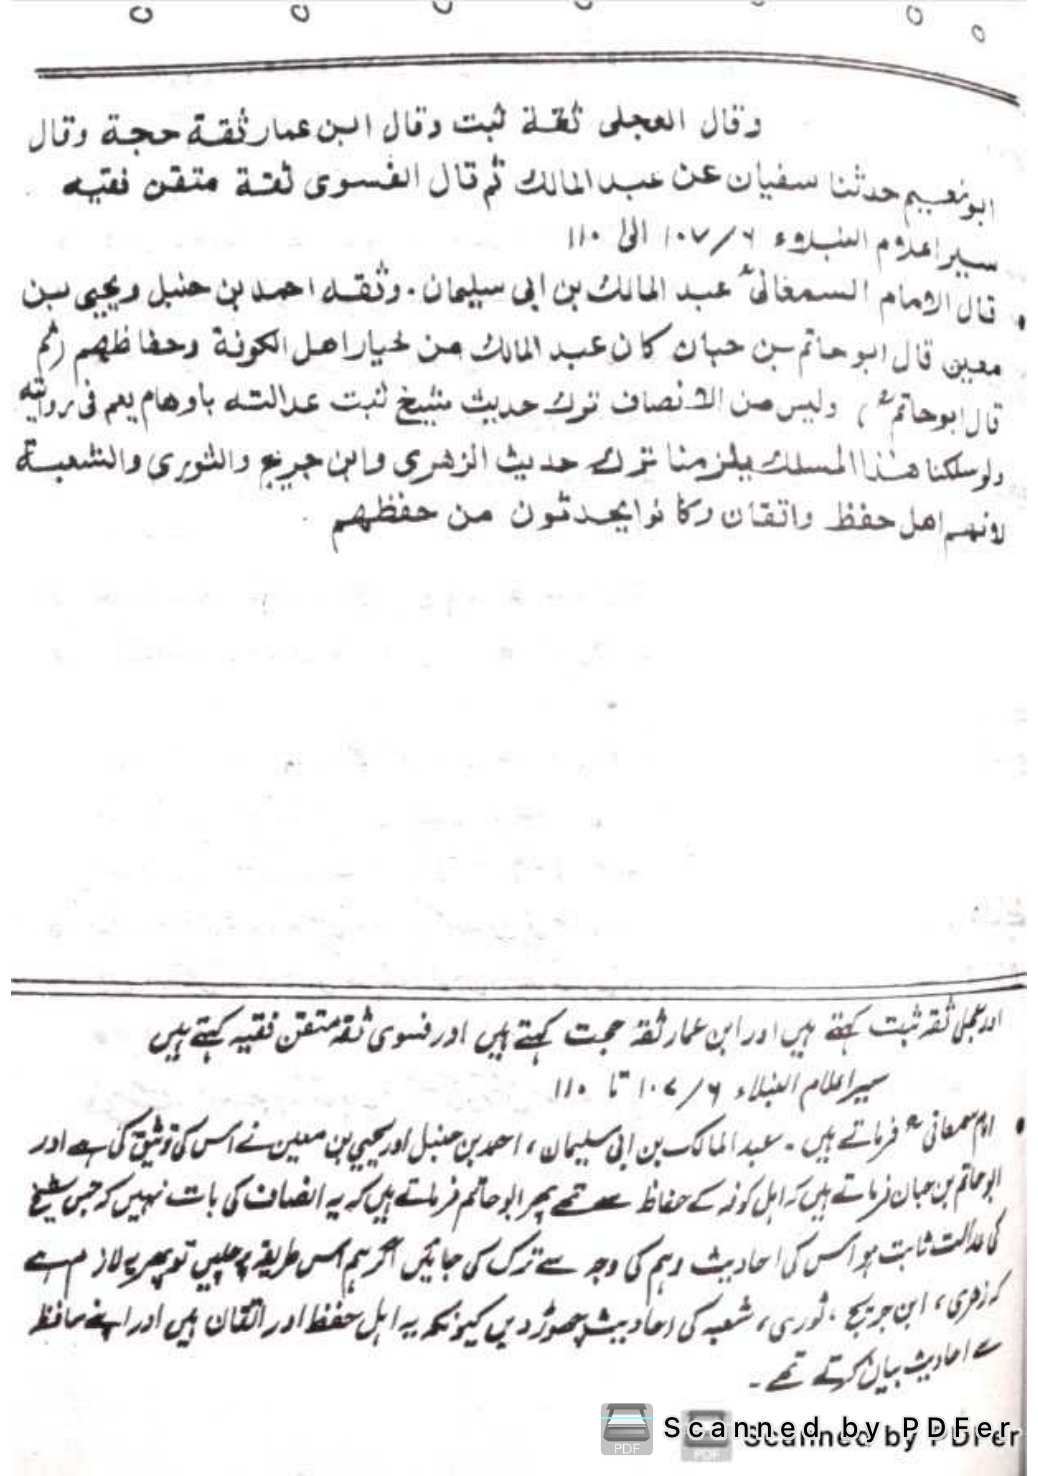 وقال العجلى ثقة ثبت وقال ابن عمار ثقة حجة وقال
ابو نعيم حدثنا سفيان عن عبد المالك ثم قال الفسوى ثقة متقن فقيه
سير اعلام النبلاء ۶/۱۰۷ الى ۱۱۰
• قال الامام السمعانىؒ عبد المالك بن ابى سليمان. وثقه احمد بن حنبل و يحيى بن
معين قال ابو حاتم بن حبان كان عبد المالك من خيار اهل الكوفة وحفاظهم (ثم
قال ابو حاتمؒ) وليس من الانصاف ترك حديث شيخ ثبت عدالته باوهام يهم فى روايته
ولو سلكنا هذا المسلك يلزمنا ترك حديث الزهرى وابن جريج والثورى والشعبة
لانهم اهل حفظ واتقان وكانوا يحدثون من حفظهم
اور عجلی ثقہ ثبت کہتے ہیں اور ابن عمار ثقہ حجت کہتے ہیں اور فسوی ثقہ متقن فقیہ کہتے ہیں
سیر اعلام النبلاء ۶/۱۰۷ تا ۱۱۰
• امام سمعانیؒ فرماتے ہیں ۔ عبد المالک بن ابی سلیمان ، احمد بن حنبل اور یحیی بن معین نے اس کی توثیق کی ہے اور
ابو حاتم بن حبان فرماتے ہیں کہ اہل کوفہ کے حفاظ سے تھے پھر ابو حاتم فرماتے ہیں کہ یہ انصاف کی بات نہیں کہ جس شیخ
کی عدالت ثابت ہو اس کی احادیث وہم کی وجہ سے ترک کی جائیں اگر ہم اس طریقہ پر چلیں تو پھر یہ لازم ہے
کہ زھری ، ابن جریج ، ثوری ، شعبہ کی احادیث چھوڑ دیں کیونکہ یہ اہل حفظ اور اتقان ہیں اور اپنے حافظہ
سے احادیث بیان کرتے تھے ۔
PDF Scanned by PDFer
PDF Scanned by PDFer